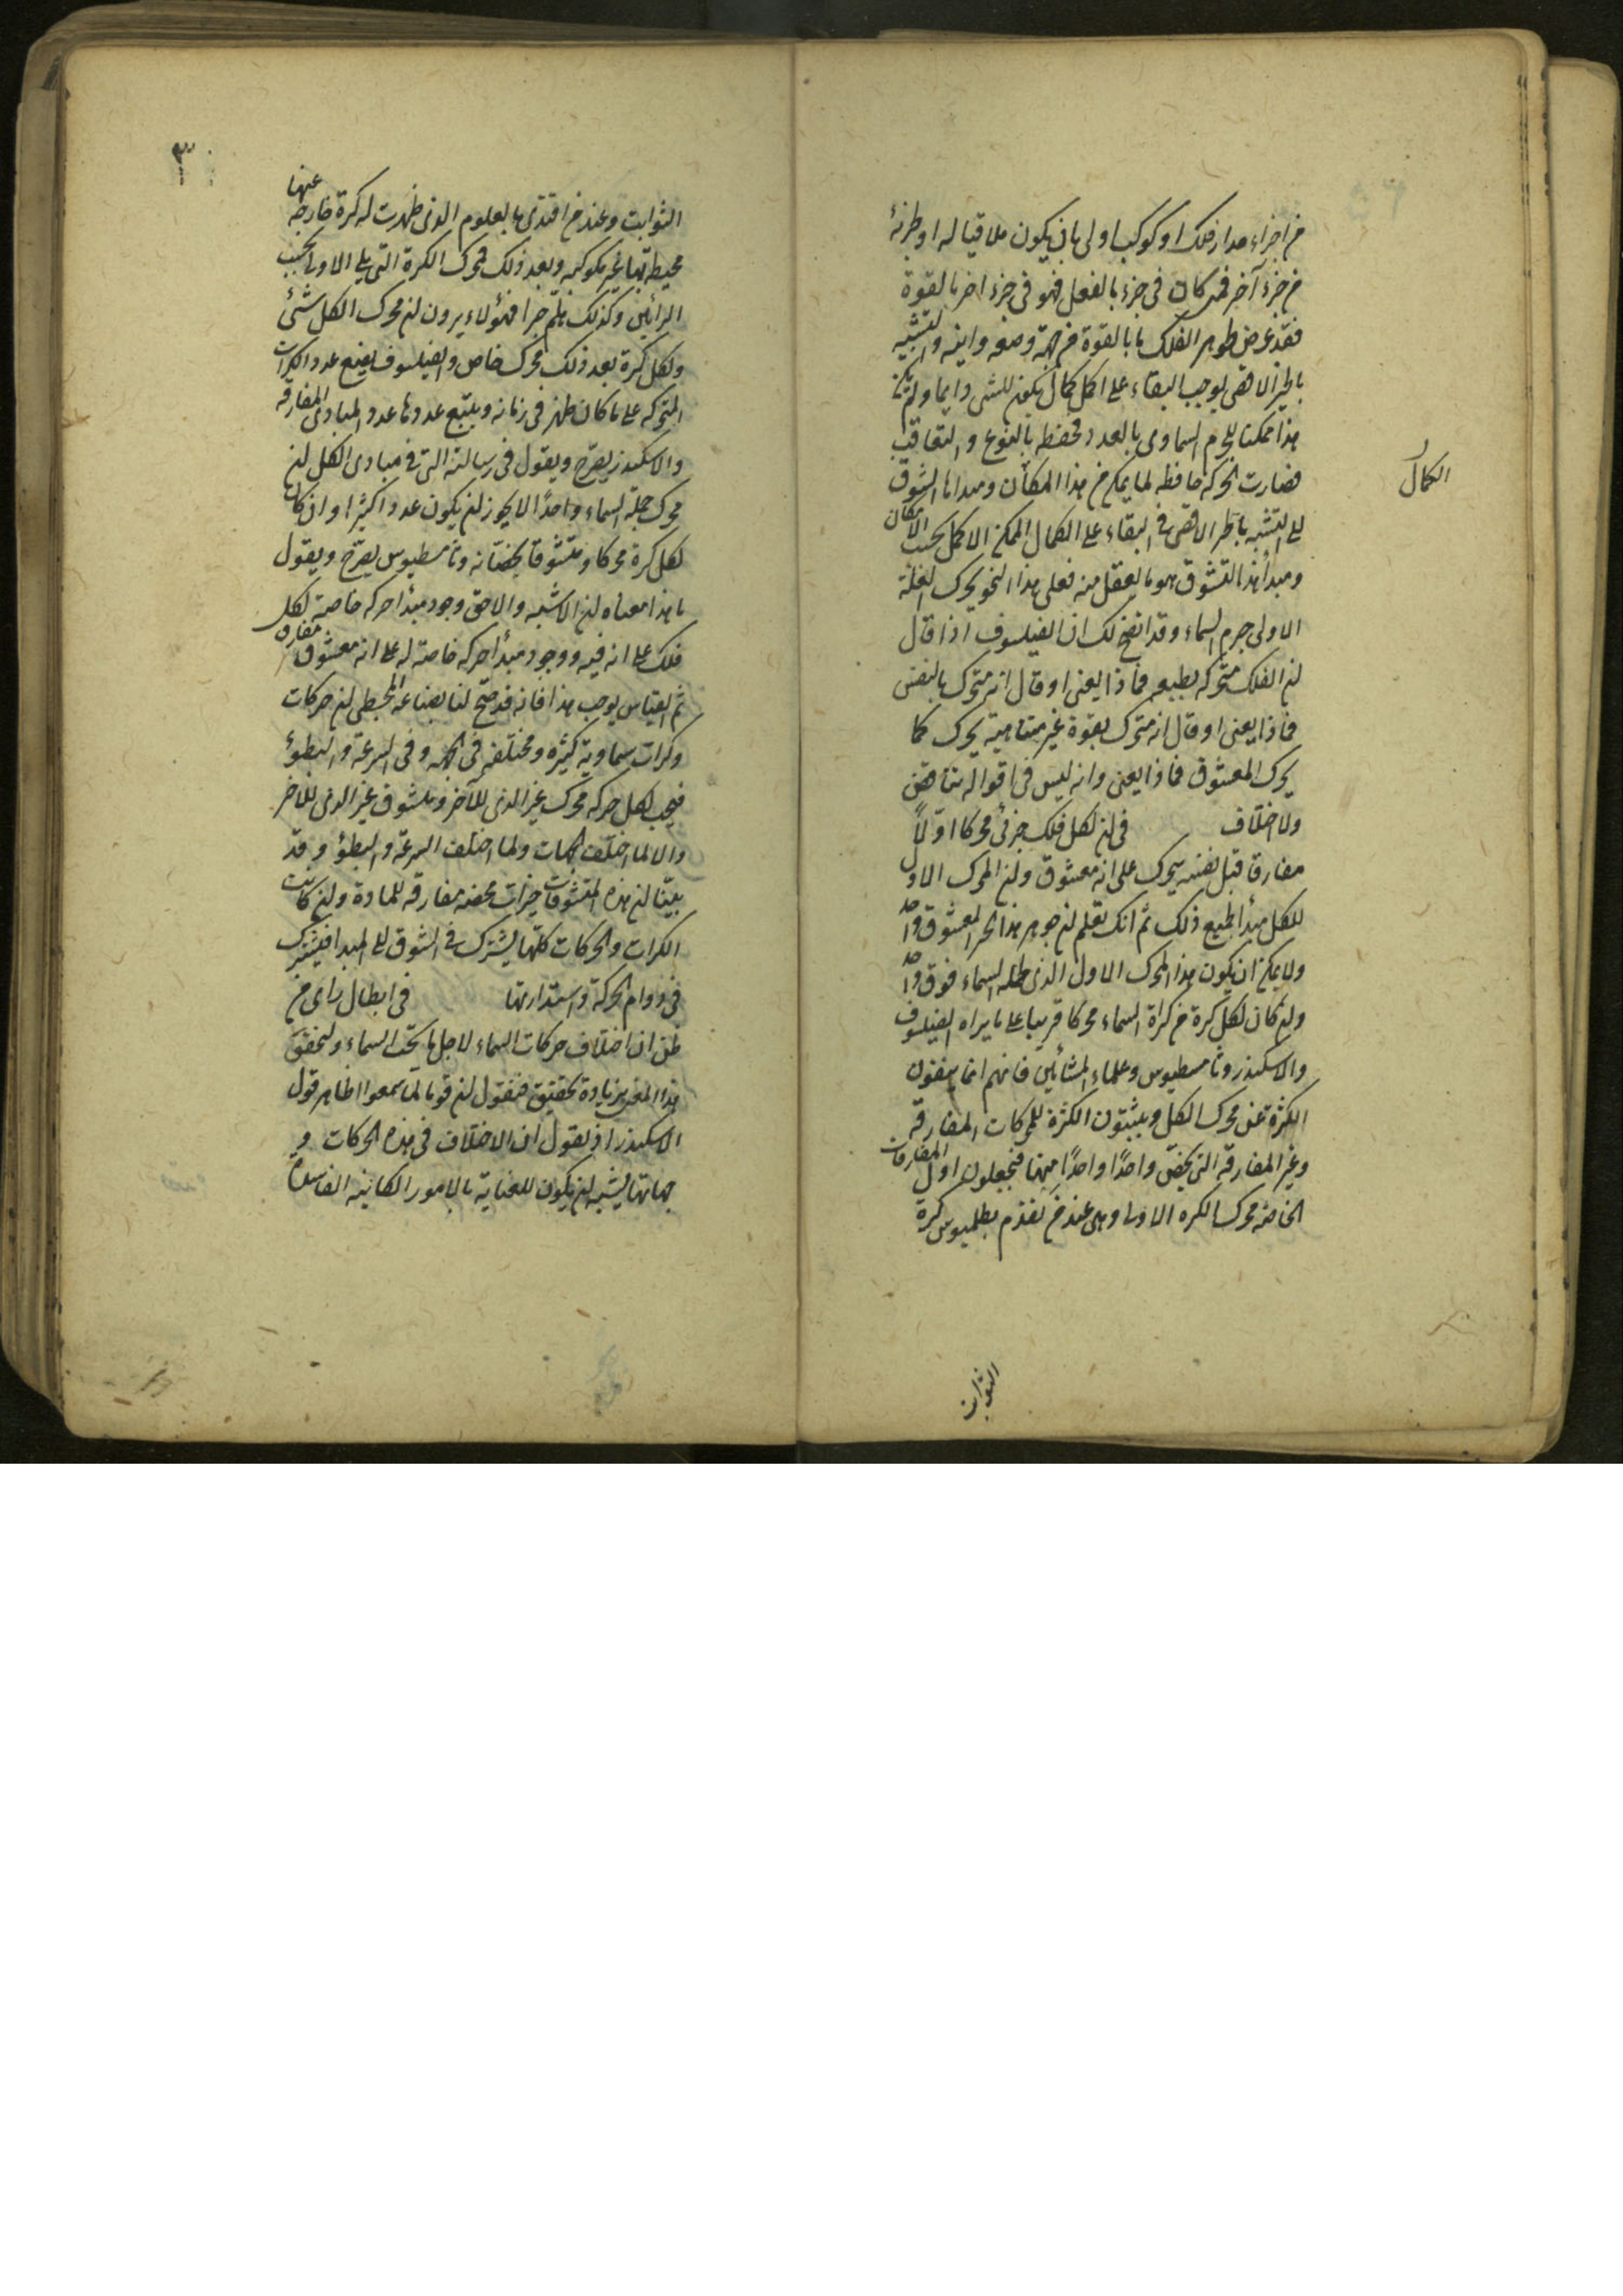 من اجزاء مدار فلك او كوكب اولى بان يكون ملاقيا له او لجزئه
من جزء آخر فمتى كان في جزء بالفعل فهو في جزء اخر بالقوة
فقد عرض لجوهر الفلك ما بالقوة من جهة وضعه واينه والتشبه
بالخير الاقصى يوجب البقاء على اكمل كمال يكون للشئ دايما ولم يكن
هذا ممكنا للجرم السماوى بالعدد فحفظ بالنوع والتعاقب
فصارت الحركة حافظه لما يمكن من هذا الكمال ومبداها الشوق
الكمال
الى التشبه بالخير الاقصى في البقاء على الكمال الممكن الاكمل بحسب الامكان
ومبدأ هذا التشوق هو ما يعقل منه فعلى هذا النحو يحرك العلة
الاولى جرم السماء وقد اتضح لك ان الفيلسوف اذا قال
ان الفلك متحركه بطبعه فماذا يعنى او قال انه متحرك بالنفس
فماذا يعنى او قال انه متحرك بقوة غير متناهية يحرك كما
يحرك المعشوق فماذا يعنى وانه ليس في اقواله تناقض
ولا اختلاف في ان لكل فلك جزئى محركا اوّلاً
مفارقا قبل نفسه يحرك على انه معشوق وان المحرك الاول
للكل مبدأ لجميع ذلك ثم انك تعلم ان جوهر هذا الخير المعشوق واحد
ولا يمكن ان يكون هذا المحرك الاول الذى لجملة السماء فوق واحد
وان كان لكل كرة من كراة السماء محركا قريبا على ما يراه الفيلسوف
والاسكندر وثامسطيوس وعلماء المشائين فانهم انما ينفون
الكثرة عن محرك الكل ويثبتون الكثرة للمحركات المفارقه
وغير المفارقه التى يخص واحدًا واحدًا منها فيجعلون اول المفارقات
الخاصه محرك الكره الاولى وهى عند من تقدم بطلميوس كرة
الثوابت
٣
الثوابت وعند من اقتدى بالعلوم الذى ظهرت له كرة خارجه عنها
محيطة بها غير مكوكبه وبعد ذلك محرك الكرة التى يلى الاولى بحسب
الرائين وكذلك هلم جرا فهؤلاء يرون ان محرك الكل شئ
ولكل كرة بعد ذلك محرك خاص والفيلسوف يضع عدد الكرات
المتحركه على ما كان ظهر في زمانه ويتبع عددها عدد المبادى المفارقه
والاسكندر يصرح ويقول في رسالته التى في مبادى الكل ان
محرك جملة السماء واحدًا لا يجوز ان يكون عددا كثيرا وان كان
لكل كرة محركا ومتشوقا يخصانه وثامسطيوس يصرح ويقول
ما هذا معناه ان الاشبه والاحق وجود مبدأ حركه خاصة لكل
فلك على انه فيه ووجود مبدأ حركه خاصة له على انه معشوق مفارق
ثم القياس يوجب هذا فانه قد صح لنا بصناعه المجسطى ان حركات
وكرات سماوية كثيره ومختلفه في الجهه وفي السرعة والبطؤ
فيجب لكل حركه محرك غير الذى للآخر ومشوق غير الذى للآخر
والا لما اختلفت الجهات ولما اختلف السرعة والبطؤ وقد
بيّنا ان هذه المتشوقات خيرات محضه مفارقه للمادة وان كانت
الكرات والحركات كلها يشترك في الشوق الى المبدا فيشترك
في دوام الحركة واستدارتها في ابطال راى من
ظن ان اختلاف حركات السماء لاجل ما تحت السماء ولنحقق
هذا المقربزيادة تحقيق فنقول ان قوما لما سمعوا ظاهر قول
الاسكندر اذ يقول ان الاختلاف في هذه الحركات و
جهاتها يشبه ان يكون للعناية بالامور الكائنه الفاسدة